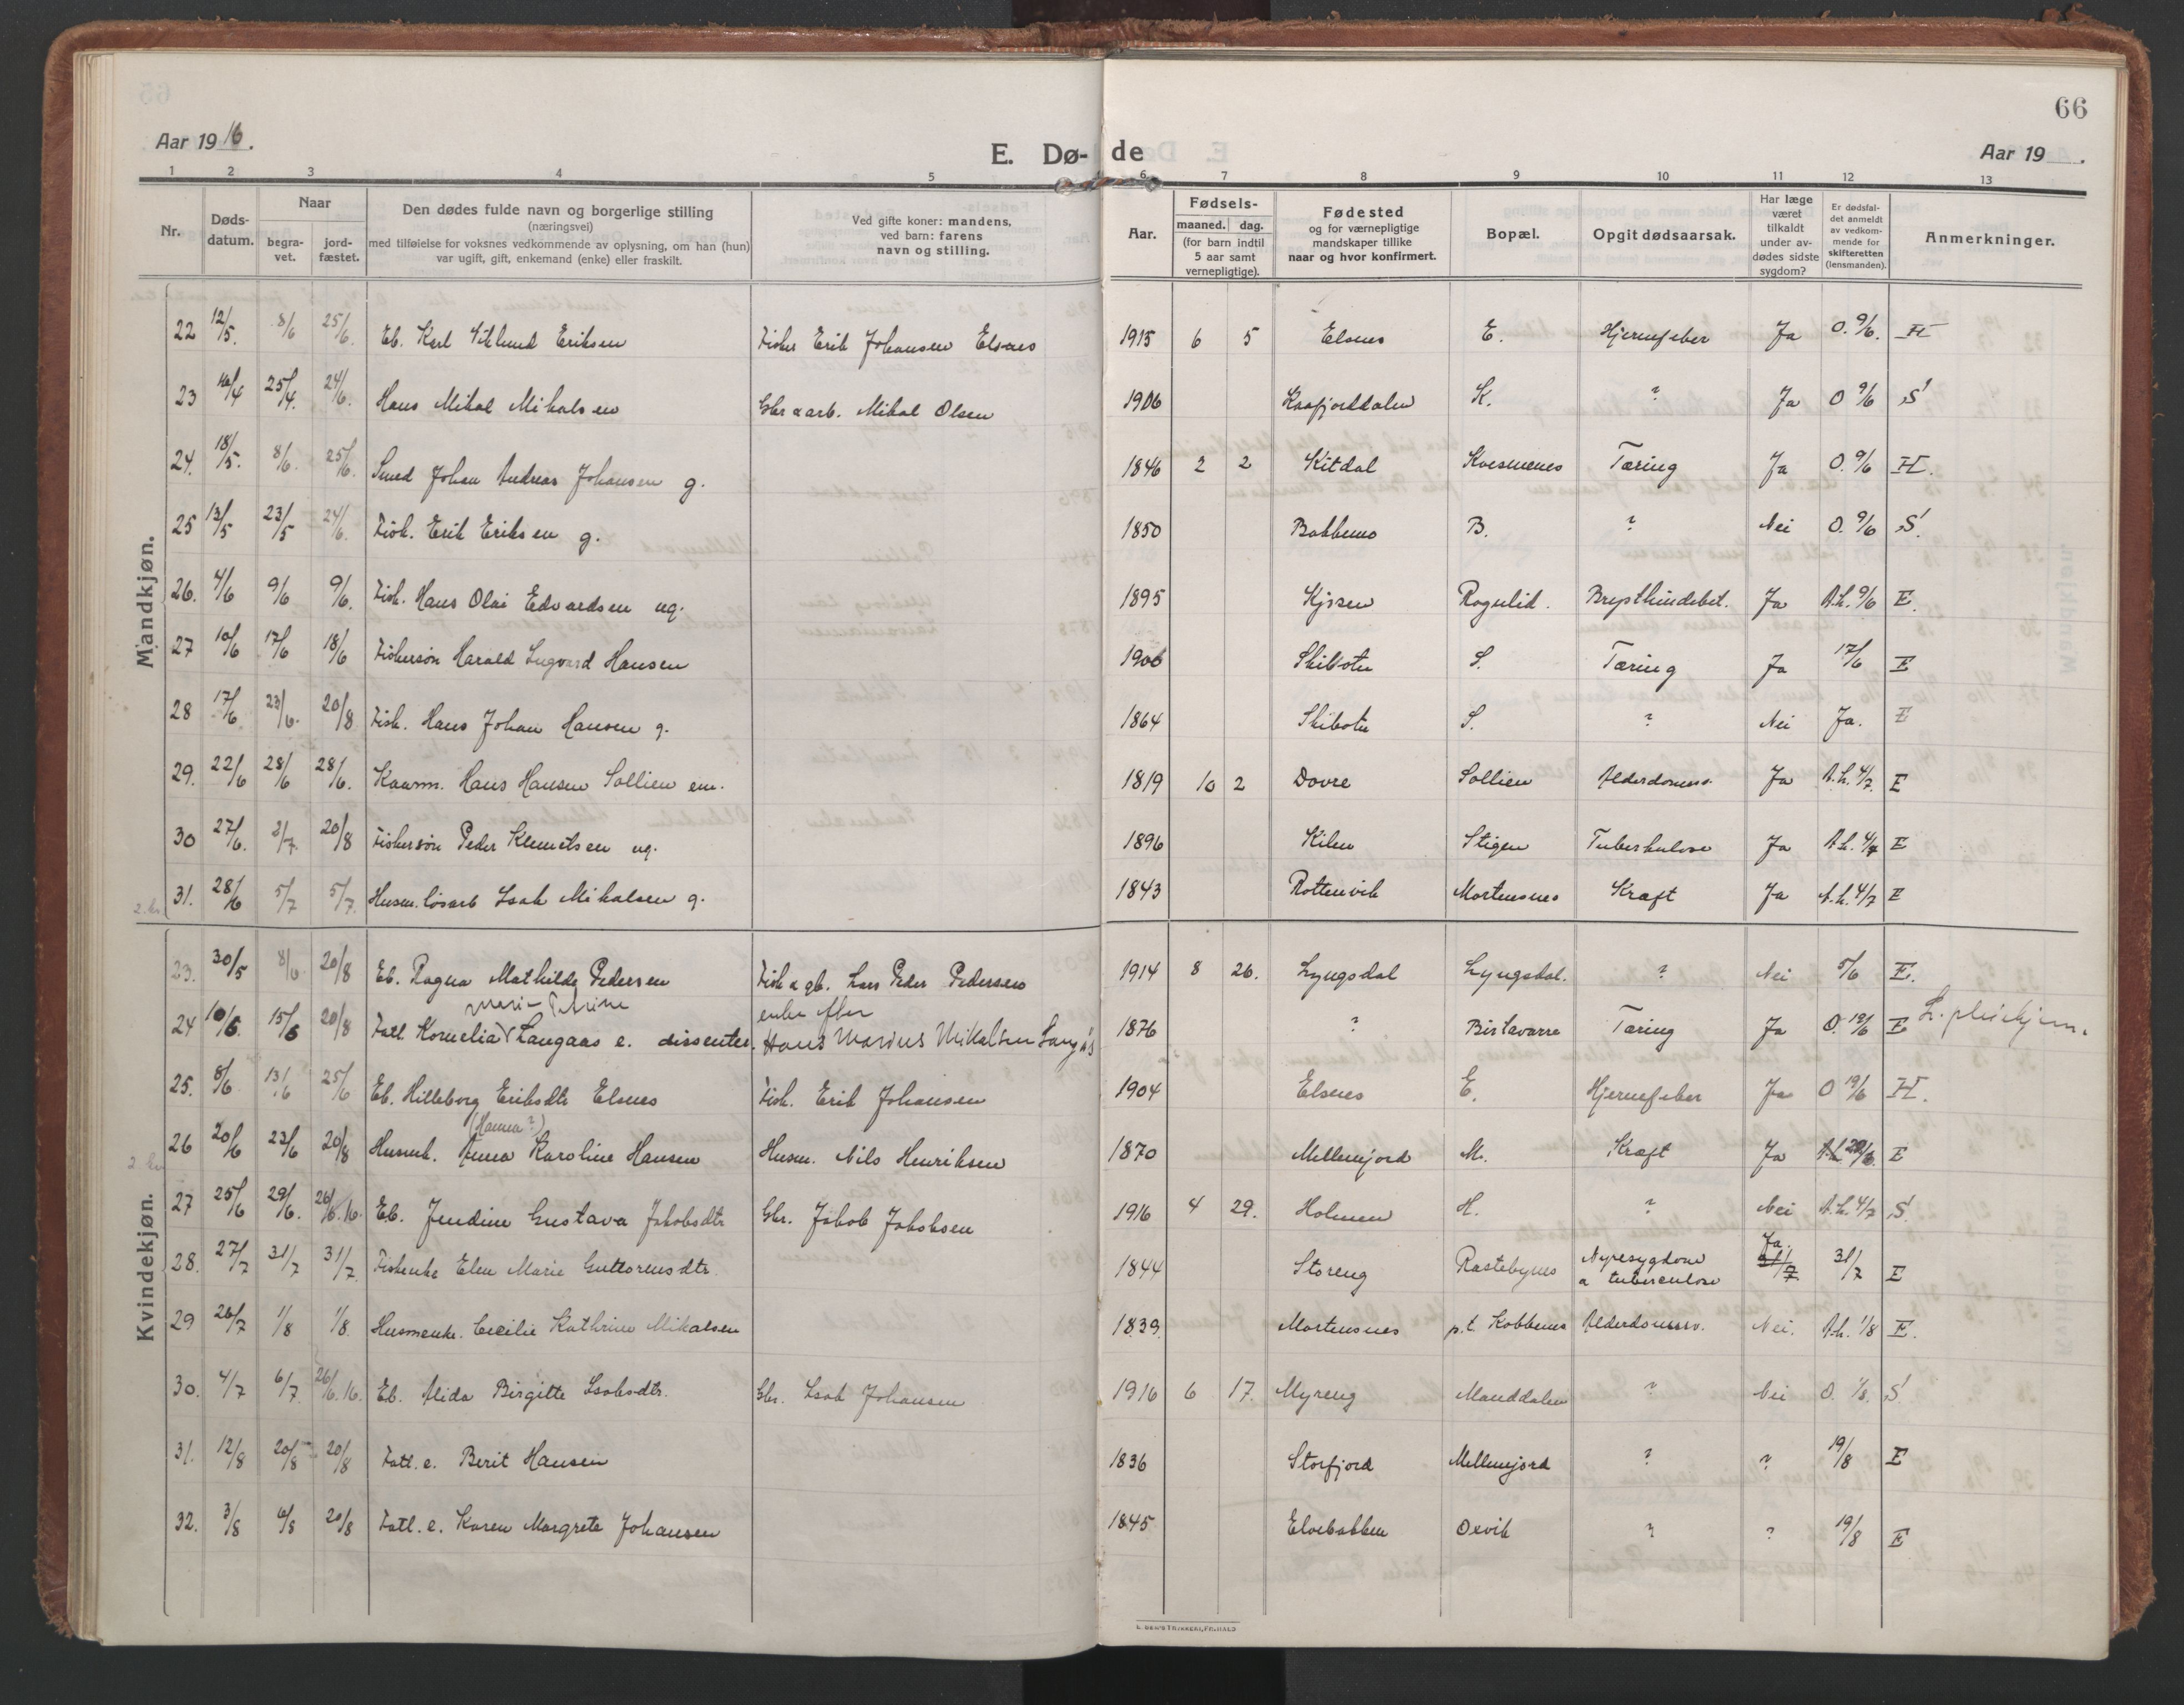 66
Aar 1916.
E. Dø-de
Aar 19 .
1 2 3 4 5 6 7 8 9 10 11 12 13
Nr.
Døds-datum.
Naar
begra-vet.
jord-fæstet.
Den dødes fulde navn og borgerlige stilling
(næringsvei)
med tilføielse for voksnes vedkommende av oplysning, om han (hun)
var ugift, gift, enkemand (enke) eller fraskilt.
Ved gifte koner: mandens,
ved barn: farens
navn og stilling.
Aar.
Fødsels-
maaned. dag.
(for barn indtil
5 aar samt
vernepligtige).
Fødested
og for værnepligtige
mandskaper tillike
naar og hvor konfirmert.
Bopæl.
Opgit dødsaarsak.
Har læge
været
tilkaldt
under av-
dødes sidste
sygdom?
Er dødsfal-
det anmeldt
av vedkom-
mende for
skifteretten
(lensmanden).
Anmerkninger.
Mandkjøn.
22 12/5. 8/6 25/6. Eb. Karl Eriksen Fisker Erik Johansen Elsnes 1915 6 5 Elsnes E. Hjernefeber Ja O. 9/6. H
23 25/4. 24/6. Hans Mikal Mikalsen Gbr a arb. Mikal Olsen 1906 Kaafjorddalen K. ? Ja O 9/6 S
24. 18/5. 8/6. 25/6. Smed Johan Andreas Johansen g. 1846 2 2 Kitdal Kvesmenes Tæring Ja O. 9/6 H.
25 13/5 23/5 24/6. Fisk. Erik Eriksen g. 1850 B. ? Nei O. 9/6 S
26. 4/6 9/6 9/6. Fisk. Hans Olai Edvardsen ug. 1895 Kjosen Brysthindebet. Ja A.h. 9/6 E.
27 10/6 17/6 18/6 Fiskersøn Harald Ingvard Hansen 1906 Skibotn S. Tæring Ja 17/6 E
28 17/6 23/6. 20/8 Fisk. Hans Johan Hansen g. 1864 Skibotn S. ? Nei Ja. E
29. 22/6 28/6 28/6. Kaarm. Hans Hansen Sollien em. 1819 10 2 Dovre Sollien Alderdomssv. Ja A.h. 4/7. E
30 27/6. 2/7. 20/8 Fiskersøn Peder Klemetsen ug. 1896 Kilen Stigen Tuberkulose Ja A.h. 4/7 E
2. kr. 31. 28/6 5/7 5/7. Husm. løsarb Isak Mikalsen g. 1843 Rottenvik Mortensnes Kræft Ja A.h. 4/7 E
Kvindekjøn.
23. 30/5 8/6 20/8 Eb. Ragna Mathilde Pedersen Fisk a gb. Lars Peder Pedersen 1914 8 26. Lyngsdal Lyngsdal. ? Nei 5/6 E.
Marie Petrine enke efter
24 10/6. 15/6 20/8 Fatl. Kornelia Langaas e. dissenter. Hans Marius Mikalsen Langås 1876 ? Birtavarre Tæring Ja O. 19/6 E L. pleiehjem.
25. 8/6 13/6 25/6 Eb. Hilleborg Eriksdtr Elsnes Fisk. Erik Johansen 1904 Elsnes E. Hjernefeber Ja O 19/6 H.
(Hanna?)
26 20/6 23/6 20/8 Husmk. Anna Karoline Hansen Husm. Nils Henriksen 1870 Mellemjord M. Kræft Ja A.h. E
27 25/6 29/6. 26/6. 16. Eb. Jendine Gustava Jakobsdtr Gbr. Jakob Jakobsen 1916 4 29. Holmen H. ? Nei A.h. 4/7 S.
28. 27/7 31/7 31/7. Fiskenke Elen Marie Guttormsdtr. 1844 Storeng Rastebynes Nyresygdom a tuberculose Ja. 31/7 31/7 E
29 26/7 1/8 1/8. Husmenke. Cecilie Kathrine Mikalsen 1839. Mortensnes p.t. Kobbenes Alderdomssv. Nei. A.h. 1/8 E.
30. 4/7 6/7 26/6. 16. Eb. Alida Birgitte Isaksdtr. Gbr. Isak Johansen 1916 6 17. Myreng Manddalen ? Nei O. 1/8. S
31. 12/8 20/8 20/8 Fatl. e. Berit Hansen 1836 Storfjord Mellemjord ? ? 19/8 E
32. 3/8 6/8 20/8 Fatl. e. Karen Margrete Johansen 1845 Elvebakken Oxvik ? ? 19/8 E